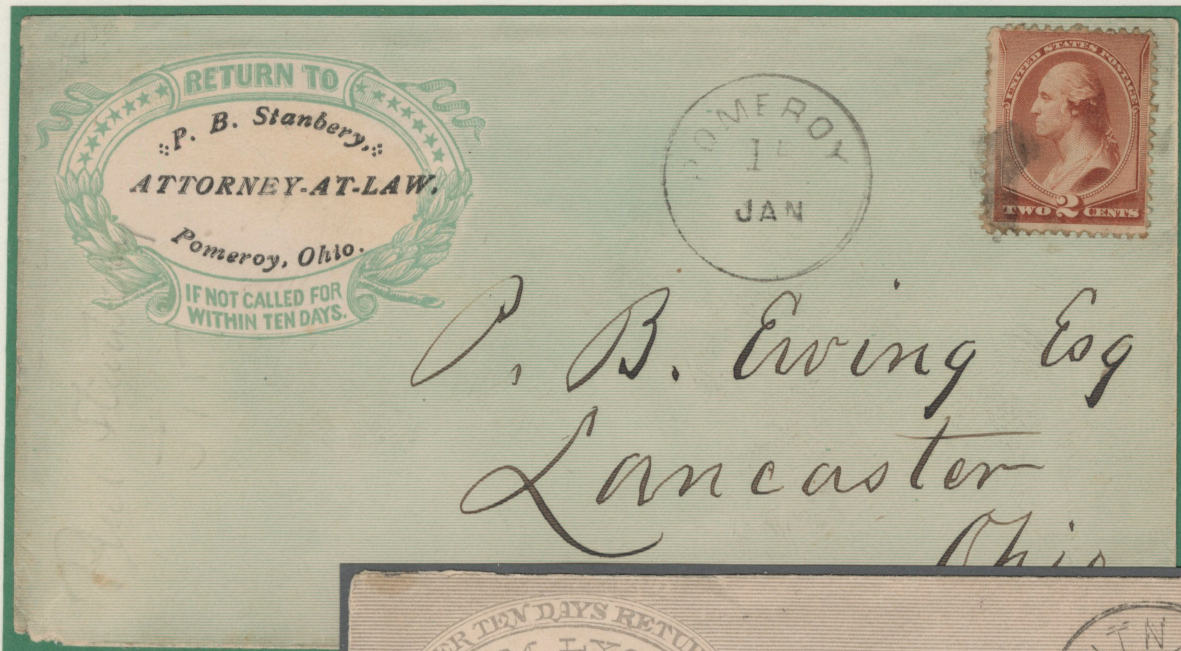 RETURN TO
P. B. Stanbery,
ATTORNEY-AT-LAW.
Pomeroy, Ohio.
IF NOT CALLED FOR
WITHIN TEN DAYS.
POMEROY
JAN
UNITED STATES POSTAGE
TWO 2 CENTS
P. B. Ewing Esq
Lancaster
Ohio
TEN DAYS